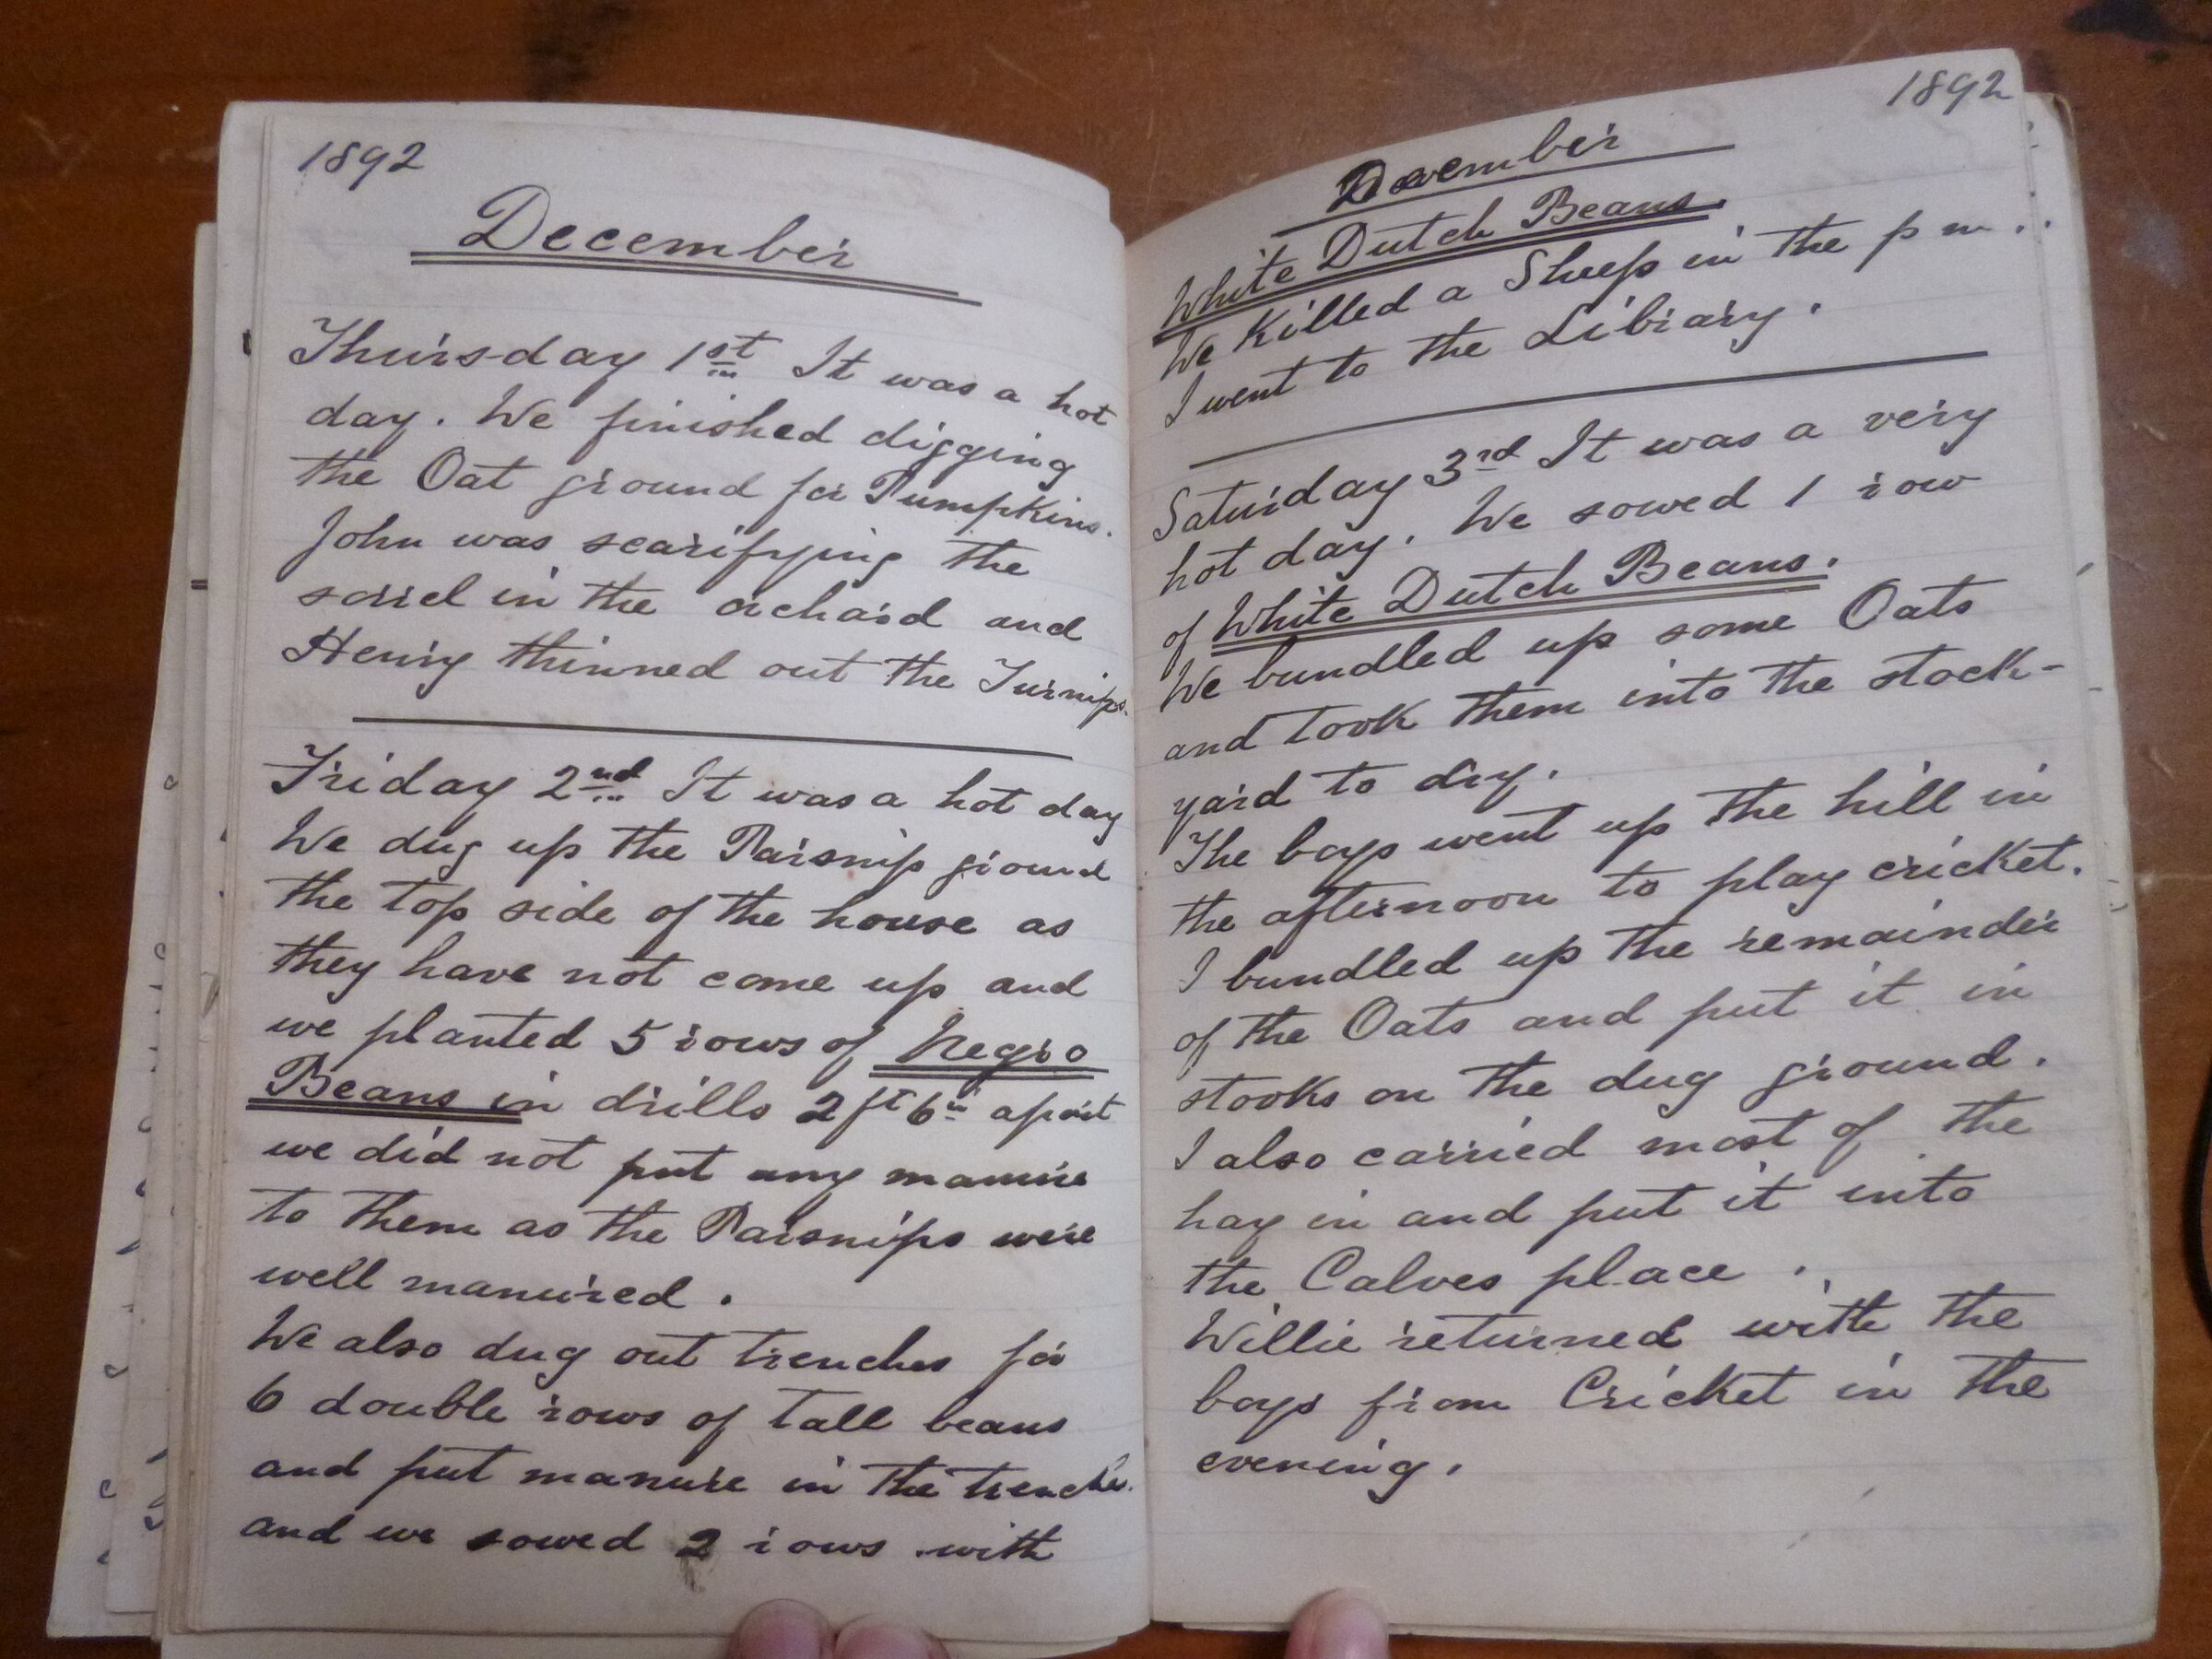 1892
December
Thursday 1st It was a hot
day. We finished digging
the Oat ground for Pumpkins.
John was scarifying the
sorrel in the orchard and
Henry thinned out the Turnips.
Friday 2nd It was a hot day
We dug up the Parsnip ground
the top side of the house as
they have not come up and
we planted 5 rows of Negro
Beans in drills 2ft 6in apart
we did not put any manure
to them as the Parsnips were
well manured.
We also dug out trenches for
6 double rows of tall beans
and put manure in the trenches
and we sowed 2 rows with
1892
December
White Dutch Beans.
We killed a Sheep in the p m.
I went to the Library.
Saturday 3rd It was a very
hot day. We sowed 1 row
of White Dutch Beans.
We bundled up some Oats
and took them into the stock-
yard to dry.
The boys went up the hill in
the afternoon to play cricket.
I bundled up the remainder
of the Oats and put it in
stooks on the dug ground.
I also carried most of the
hay in and put it into
the Calves place.
Willie returned with the
boys from Cricket in the
evening.